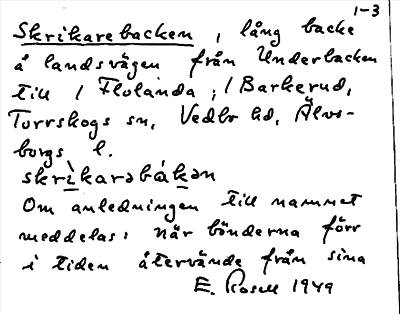 1-3
Skrikarebacken, lång backe
å landsvägen från Underbacken
till / Flolanda; / Barkerud,
Torrskogs sn, Vedbo hd, Älvs-
borgs l.
skrìkarəbák̲ən
Om anledningen till namnet
meddelas: när bönderna förr
i tiden återvände från sina
E. Rosell 1949